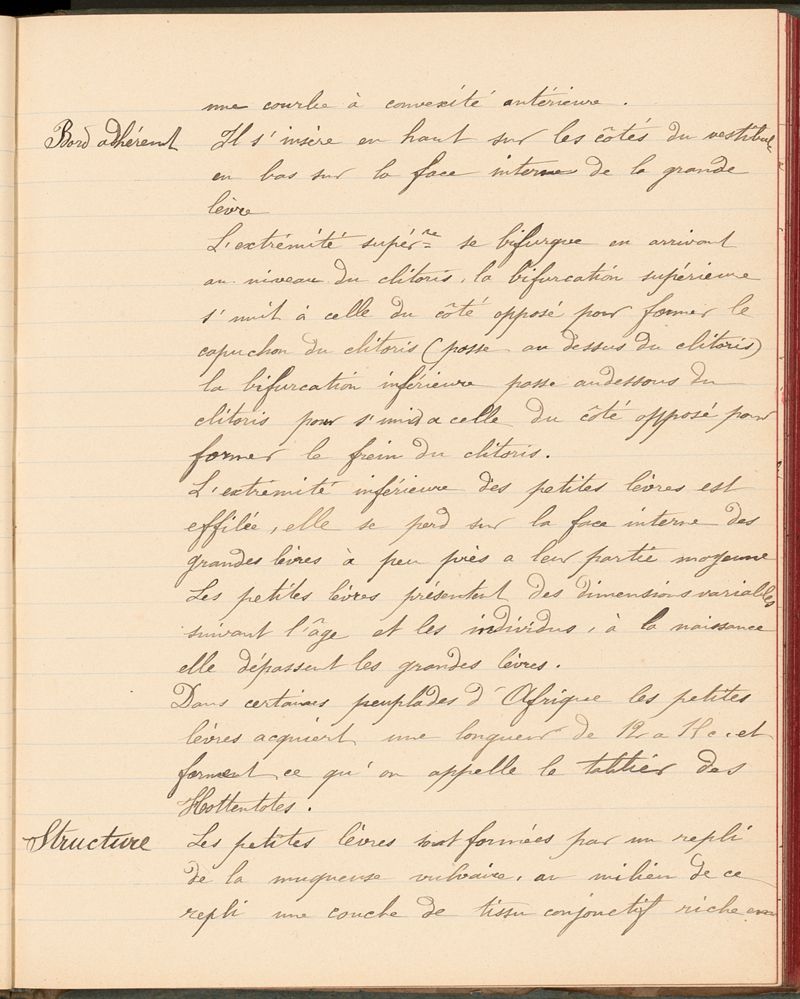 une courbe à convexité antérieure.
Bord adhérent Il s'insère en haut sur les côtés du vestibule
en bas sur la face interne de la grande
lèvre
L'extrémité supérre se bifurque en arrivant
au niveau du clitoris, la bifurcation supérieure
s'unit à celle du côté opposé pour former le
capuchon du clitoris (passe au dessus du clitoris)
la bifurcation inférieure passe au dessous du
clitoris pour s'unir a celle du côté opposé pour
former le frein du clitoris.
L'extrémité inférieure des petites lèvres est
effilée, elle se perd sur la face interne des
grandes lèvres à peu près a leur partie moyenne
Les petites lèvres présentent des dimensions variables
suivant l'âge et les individus, à la naissance
elle dépassent les grandes lèvres.
Dans certaines peuplades d'Afrique les petites
lèvres acquiert une longueur de 12 a c. et
forment ce qu'on appelle le tablier des
Hottentotes.
Structure Les petites lèvres sont formées par un repli
de la muqueuse vulvaire, au milieu de ce
repli une couche de tissu conjonctif riche